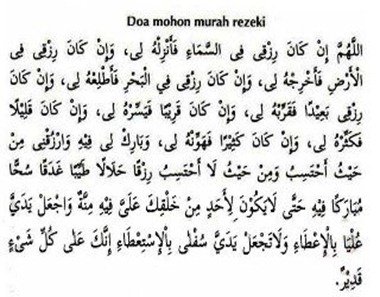 Doa mohon murah rezeki
اللَّهُمَّ إِنْ كَانَ رِزْقِى فِى السَّمَاءِ فَأَنْزِلْهُ لِى، وَإِنْ كَانَ رِزْقِى فِى
الْأَرْضِ فَأَخْرِجْهُ لِى، وَإِنْ كَانَ رِزْقِى فِى الْبَحْرِ فَأَطْلِعْهُ لِى، وَإِنْ كَانَ
رِزْقِى بَعِيْدًا فَقَرِّبْهُ لِى، وَإِنْ كَانَ قَرِيْبًا فَيَسِّرْهُ لِى، وَإِنْ كَانَ قَلِيْلًا
فَكَثِّرْهُ لِى، وَإِنْ كَانَ كَثِيْرًا فَهَوِّنْهُ لِى، وَبَارِكْ لِى فِيْهِ وَارْزُقْنِى مِنْ
حَيْثُ أَحْتَسِبُ وَمِنْ حَيْثُ لَا أَحْتَسِبُ رِزْقًا حَلَالًا طَيِّبًا غَدَقًا سُحًّا
مُبَارَكًا فِيْهِ حَتَّى لَايَكُوْنَ لِأَحَدٍ مِنْ خَلْقِكَ عَلَيَّ فِيْهِ مِنَّةٌ وَاجْعَلْ يَدَيَّ
عُلْيًا بِالْإِعْطَاءِ وَلَاتَجْعَلْ يَدَيَّ سُفْلَى بِالْإِسْتِعْطَاءِ إِنَّكَ عَلَى كُلِّ شَىْءٍ
قَدِيْرٌ.